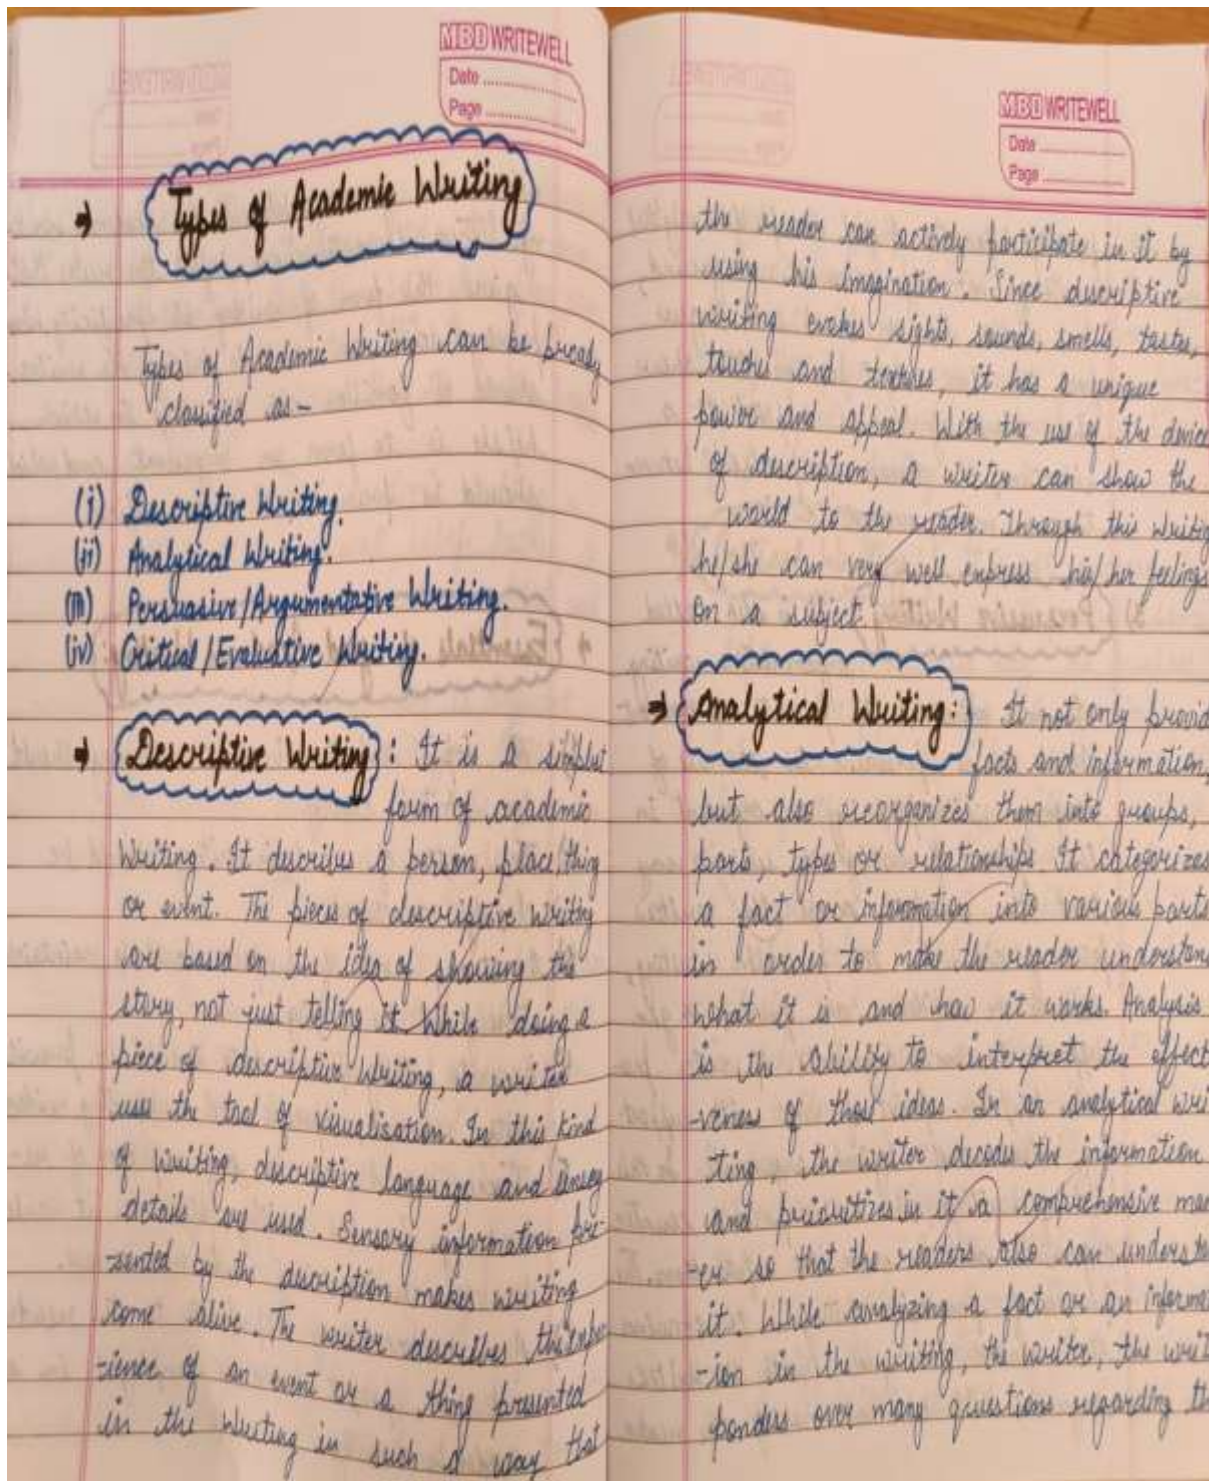 MBD WRITEWELL
Date
Page
⇒ Types of Academic Writing
Types of Academic Writing can be broadly
classified as-
(i) Descriptive Writing.
(ii) Analytical Writing.
(iii) Persuasive/Argumentative Writing.
(iv) Critical/Evaluative Writing.
⇒ Descriptive Writing : It is a simplest
form of academic
Writing. It describes a person, place/thing
or event. The pieces of descriptive writing
are based on the idea of showing the
story, not just telling it. While doing a
piece of descriptive Writing, a writer
uses the tool of visualisation. In this kind
of writing, descriptive language and
details are used. Sensory information pre-
-sented by the description makes writing
come alive. The writer describes the expe
-rience of an event or a thing presented
in the Writing in such a way that
MBD WRITEWELL
Date
Page
the reader can actively participate in it by
using his imagination. Since descriptive
writing evokes sights, sounds, smells, tastes,
touches and textures, it has a unique
power and appeal. With the use of the device
of description, a writer can show the
world to the reader. Through this writing
he/she can very well express his/her feelings
on a subject.
⇒ Analytical Writing : It not only provid
facts and information,
but also reorganizes them into groups,
parts, types or relationships. It categorizes
a fact or information into various parts
in order to make the reader understan
what it is and how it works. Analysis
is the ability to interpret the effect
-veness of those ideas. In an analytical wri
ting, the writer decodes the information
and prioritizes in it a comprehensive man
-er so that the readers also can understa
it. While analyzing a fact or an informa
-ion in the writing, the writer, the writ
ponders over many questions regarding th